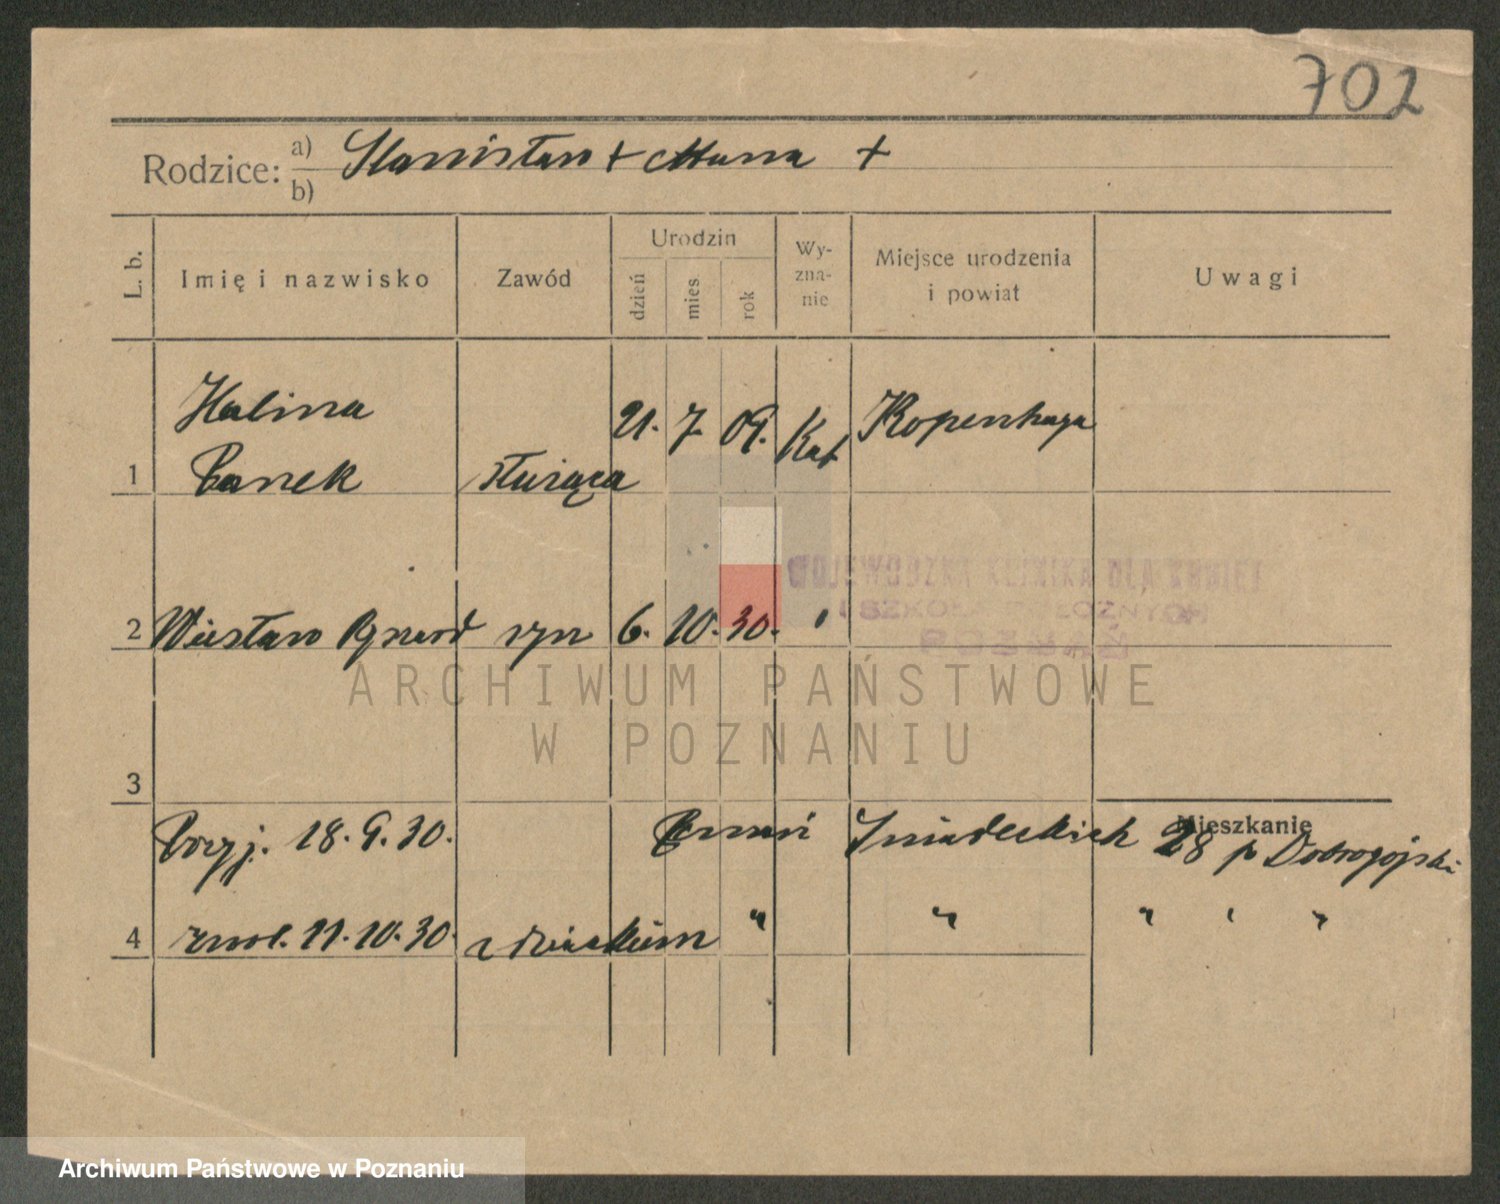 702
Rodzice: a) Stanisław + Anna +
b)
L. b. Imię i nazwisko Zawód Urodzin dzień mies rok Wy-zna-nie Miejsce urodzenia i powiat Uwagi
Halina 21. 7. 09. Kat Kopenhaga
1 Panek służąca
WOJEWÓDZKA KLINIKA DLA KOBIET
I SZKOŁA POŁOŻNYCH
POZNAŃ
2 Wiesław Ryszard syn 6. 10. 30. "
ARCHIWUM PAŃSTWOWE
W POZNANIU
3
Mieszkanie
Przyj. 18. 9. 30. Poznań Śniadeckich 28 p Dobrogojski
4 zwol. 11. 10. 30. z dzieckiem " " " " "
Archiwum Państwowe w Poznaniu